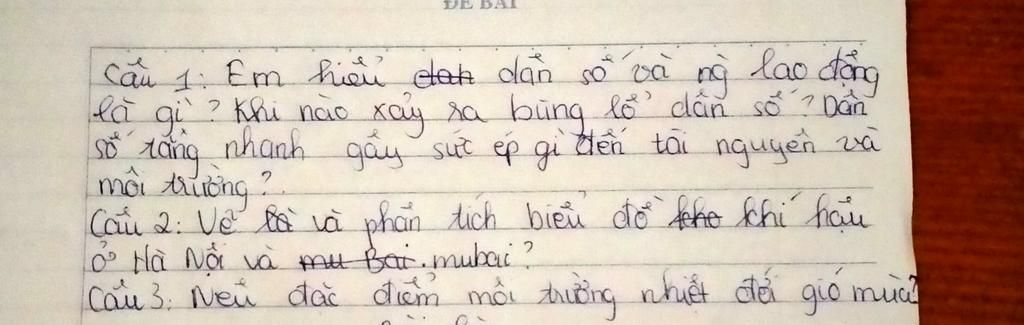 ĐỀ BÀI
Câu 1: Em hiểu dân số và ng̀ lao động
là gì? Khi nào xảy ra bùng lổ dân số? Dân
số tăng nhanh gây sức ép gì đến tài nguyên và
môi trường?
Câu 2: Vẽ và phân tích biểu đồ khí hậu
ở Hà Nội và mubai?
Câu 3: Nêu đặc điểm môi trường nhiệt đới gió mùa?